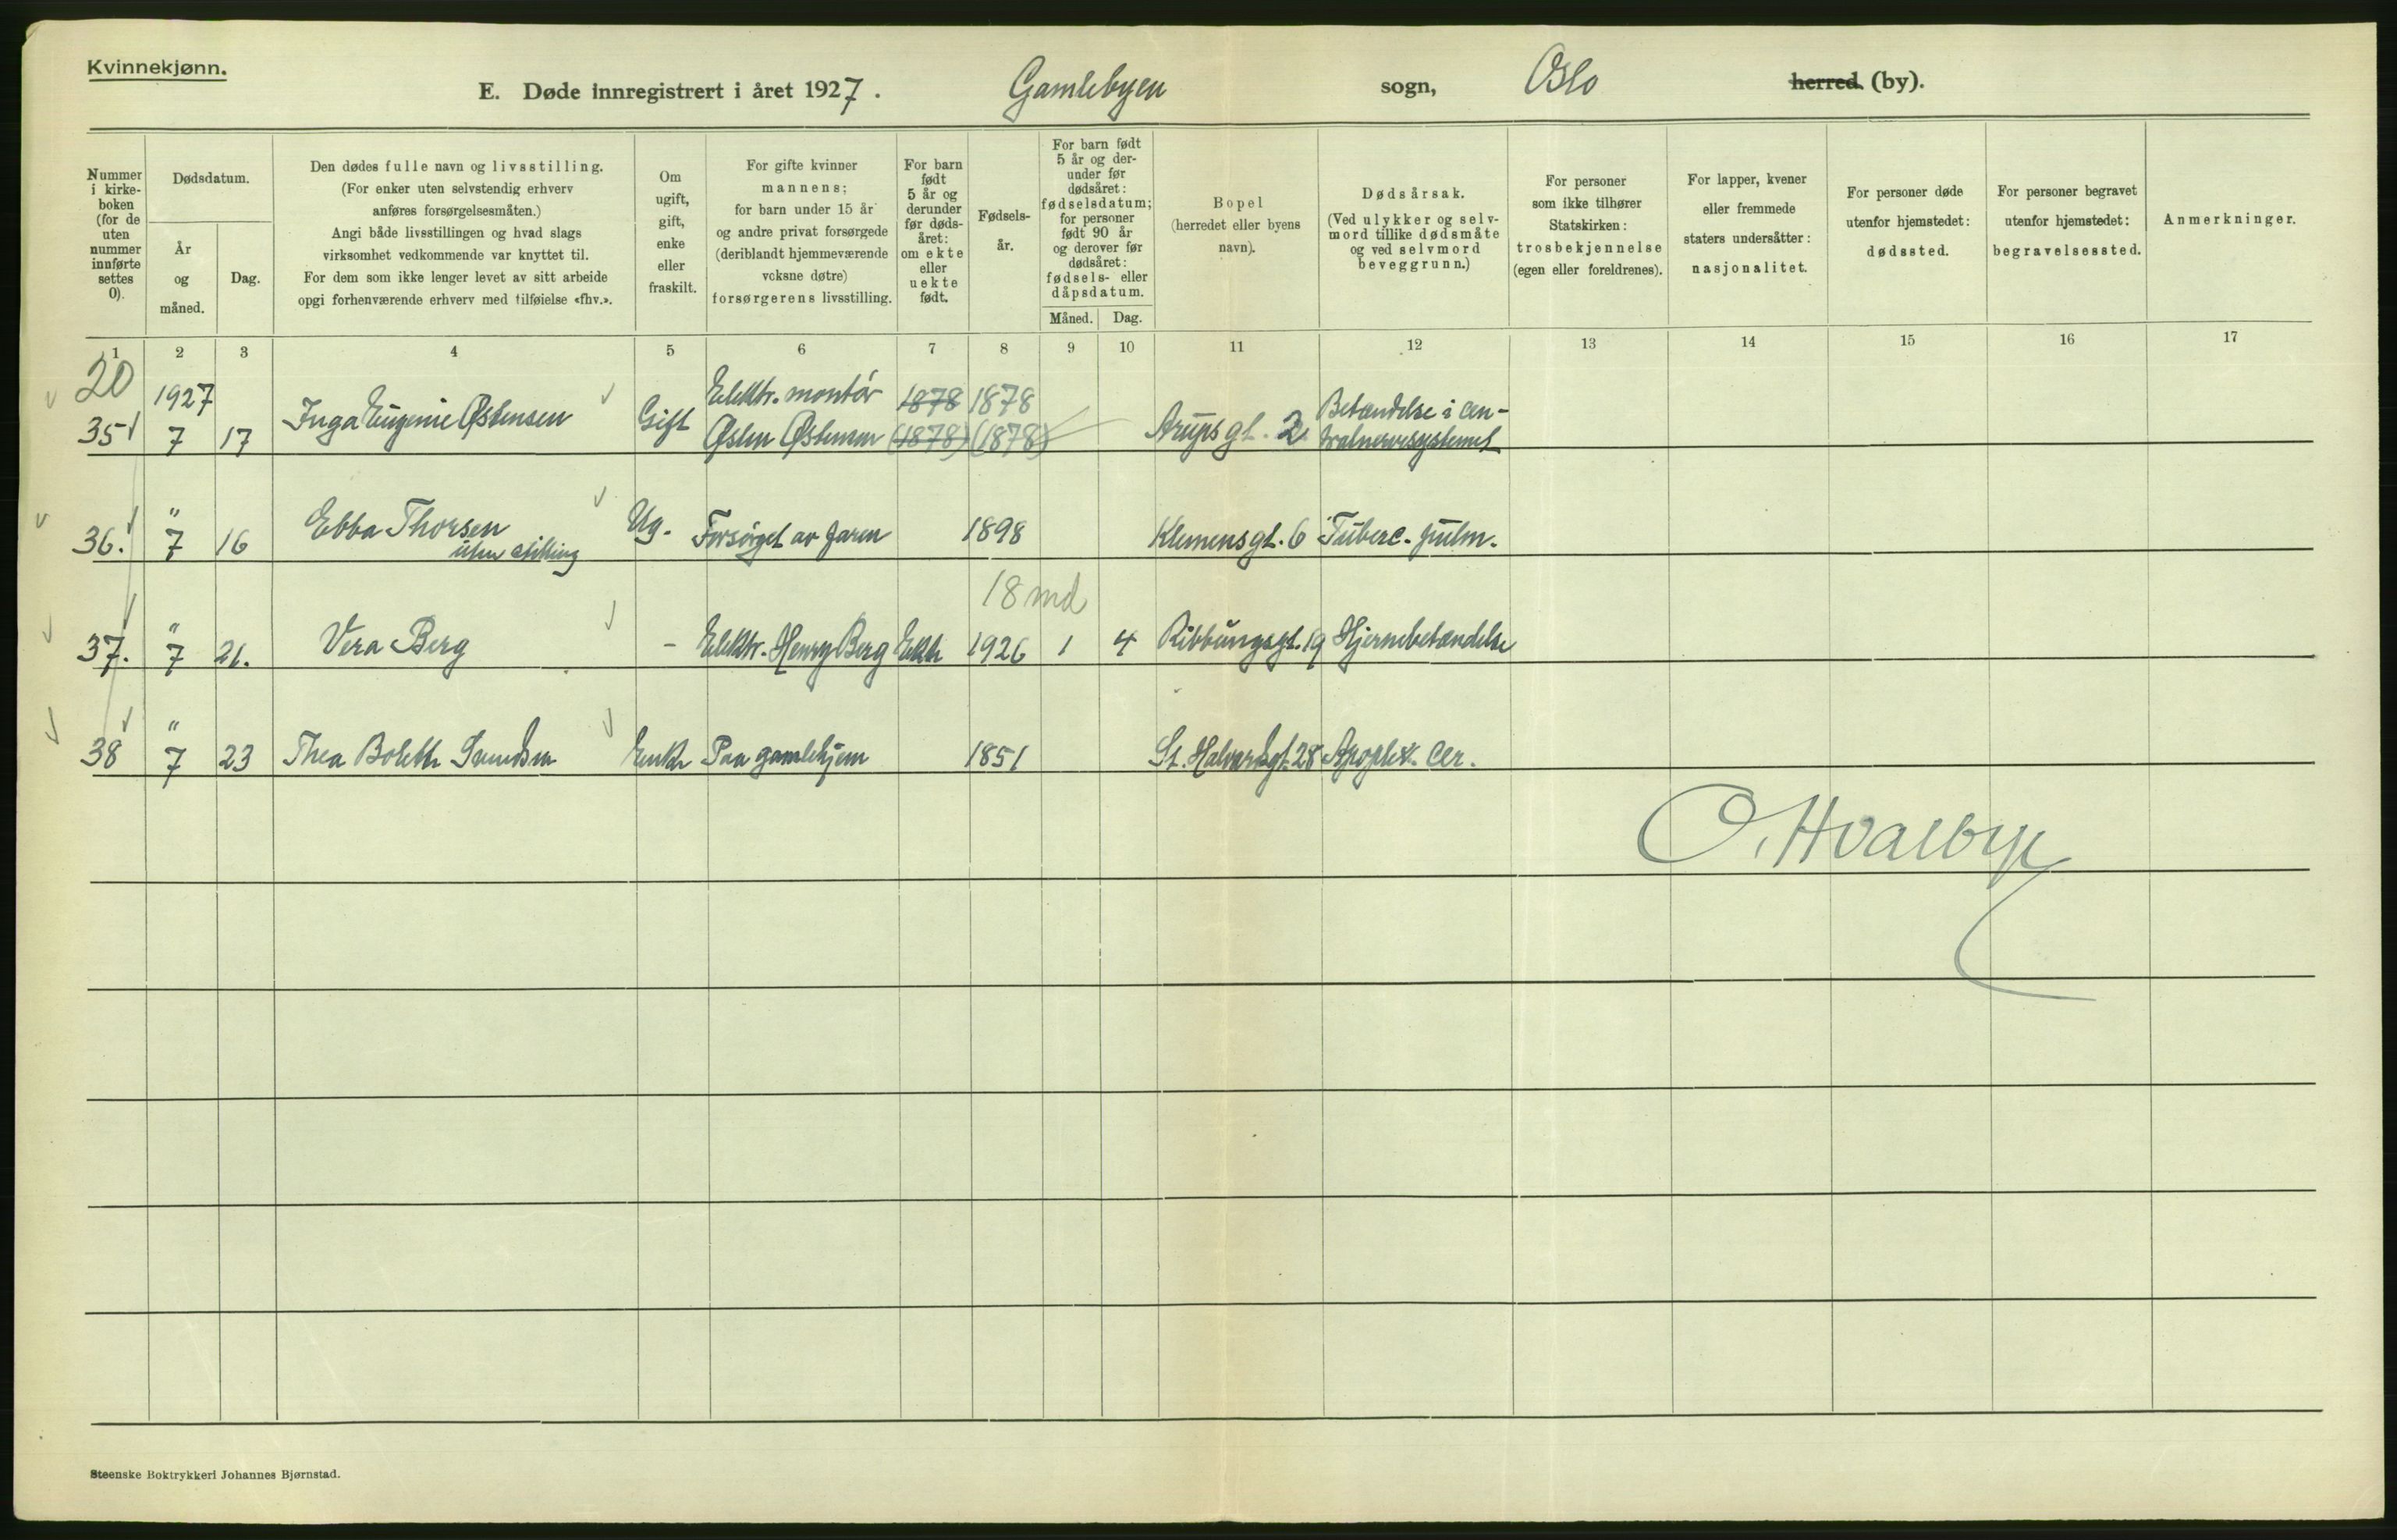 Kvinnekjønn.
E. Døde innregistrert i året 1927. Gamlebyen sogn, Oslo herred (by).
Nummer i kirke-boken (for de uten nummer innførte settes 0).
Dødsdatum.
År og måned.
Dag.
Den dødes fulle navn og livsstilling.
(For enker uten selvstendig erhverv
anføres forsørgelsesmåten.)
Angi både livsstillingen og hvad slags
virksomhet vedkommende var knyttet til.
For dem som ikke lenger levet av sitt arbeide
opgi forhenværende erhverv med tilføielse «fhv.».
Om
ugift,
gift,
enke
eller
fraskilt.
For gifte kvinner
mannens;
for barn under 15 år
og andre privat forsørgede
(deriblandt hjemmeværende
voksne døtre)
forsørgerens livsstilling.
For barn
født
5 år og
derunder
før døds-
året:
om ekte
eller
uekte
født.
Fødsels-
år.
For barn født
5 år og der-
under før
dødsåret:
fødselsdatum;
for personer
født 90 år
og derover før
dødsåret:
fødsels- eller
dåpsdatum.
Måned. Dag.
Bopel
(herredet eller byens
navn).
Dødsårsak.
(Ved ulykker og selv-
mord tillike dødsmåte
og ved selvmord
beveggrunn.)
For personer
som ikke tilhører
Statskirken:
trosbekjennelse
(egen eller foreldrenes).
For lapper, kvener
eller fremmede
staters undersåtter:
nasjonalitet.
For personer døde
utenfor hjemstedet:
dødssted.
For personer begravet
utenfor hjemstedet:
begravelsessted.
Anmerkninger.
1 2 3 4 5 6 7 8 9 10 11 12 13 14 15 16 17
20 1927 Elektr. montör 1878 1878 Betændelse i cen-
35 7 17 Inga Eugenie Østensen Gift Østen Østensen (1878) (1878) Arupsgt. 2. tralnervesystemet
36. " 7 16 Ebba Thorsen Ug. Forsörget av faren 1898 Klemensgt. 6 Tuberc. pulm.
uten stilling
18 md
37. " 7 21. Vera Berg - Elektr. Henry Berg Ekte 1926 1 4 Ribbungsgt. 19 Hjernebetændelse
38 " 7 23 Thea Bolette Svendsen Enke Paa gamlehjem 1851 St. Halvardsgt. 28 Apoplex. cer.
O. Hvalbye
Steenske Boktrykkeri Johannes Bjørnstad.